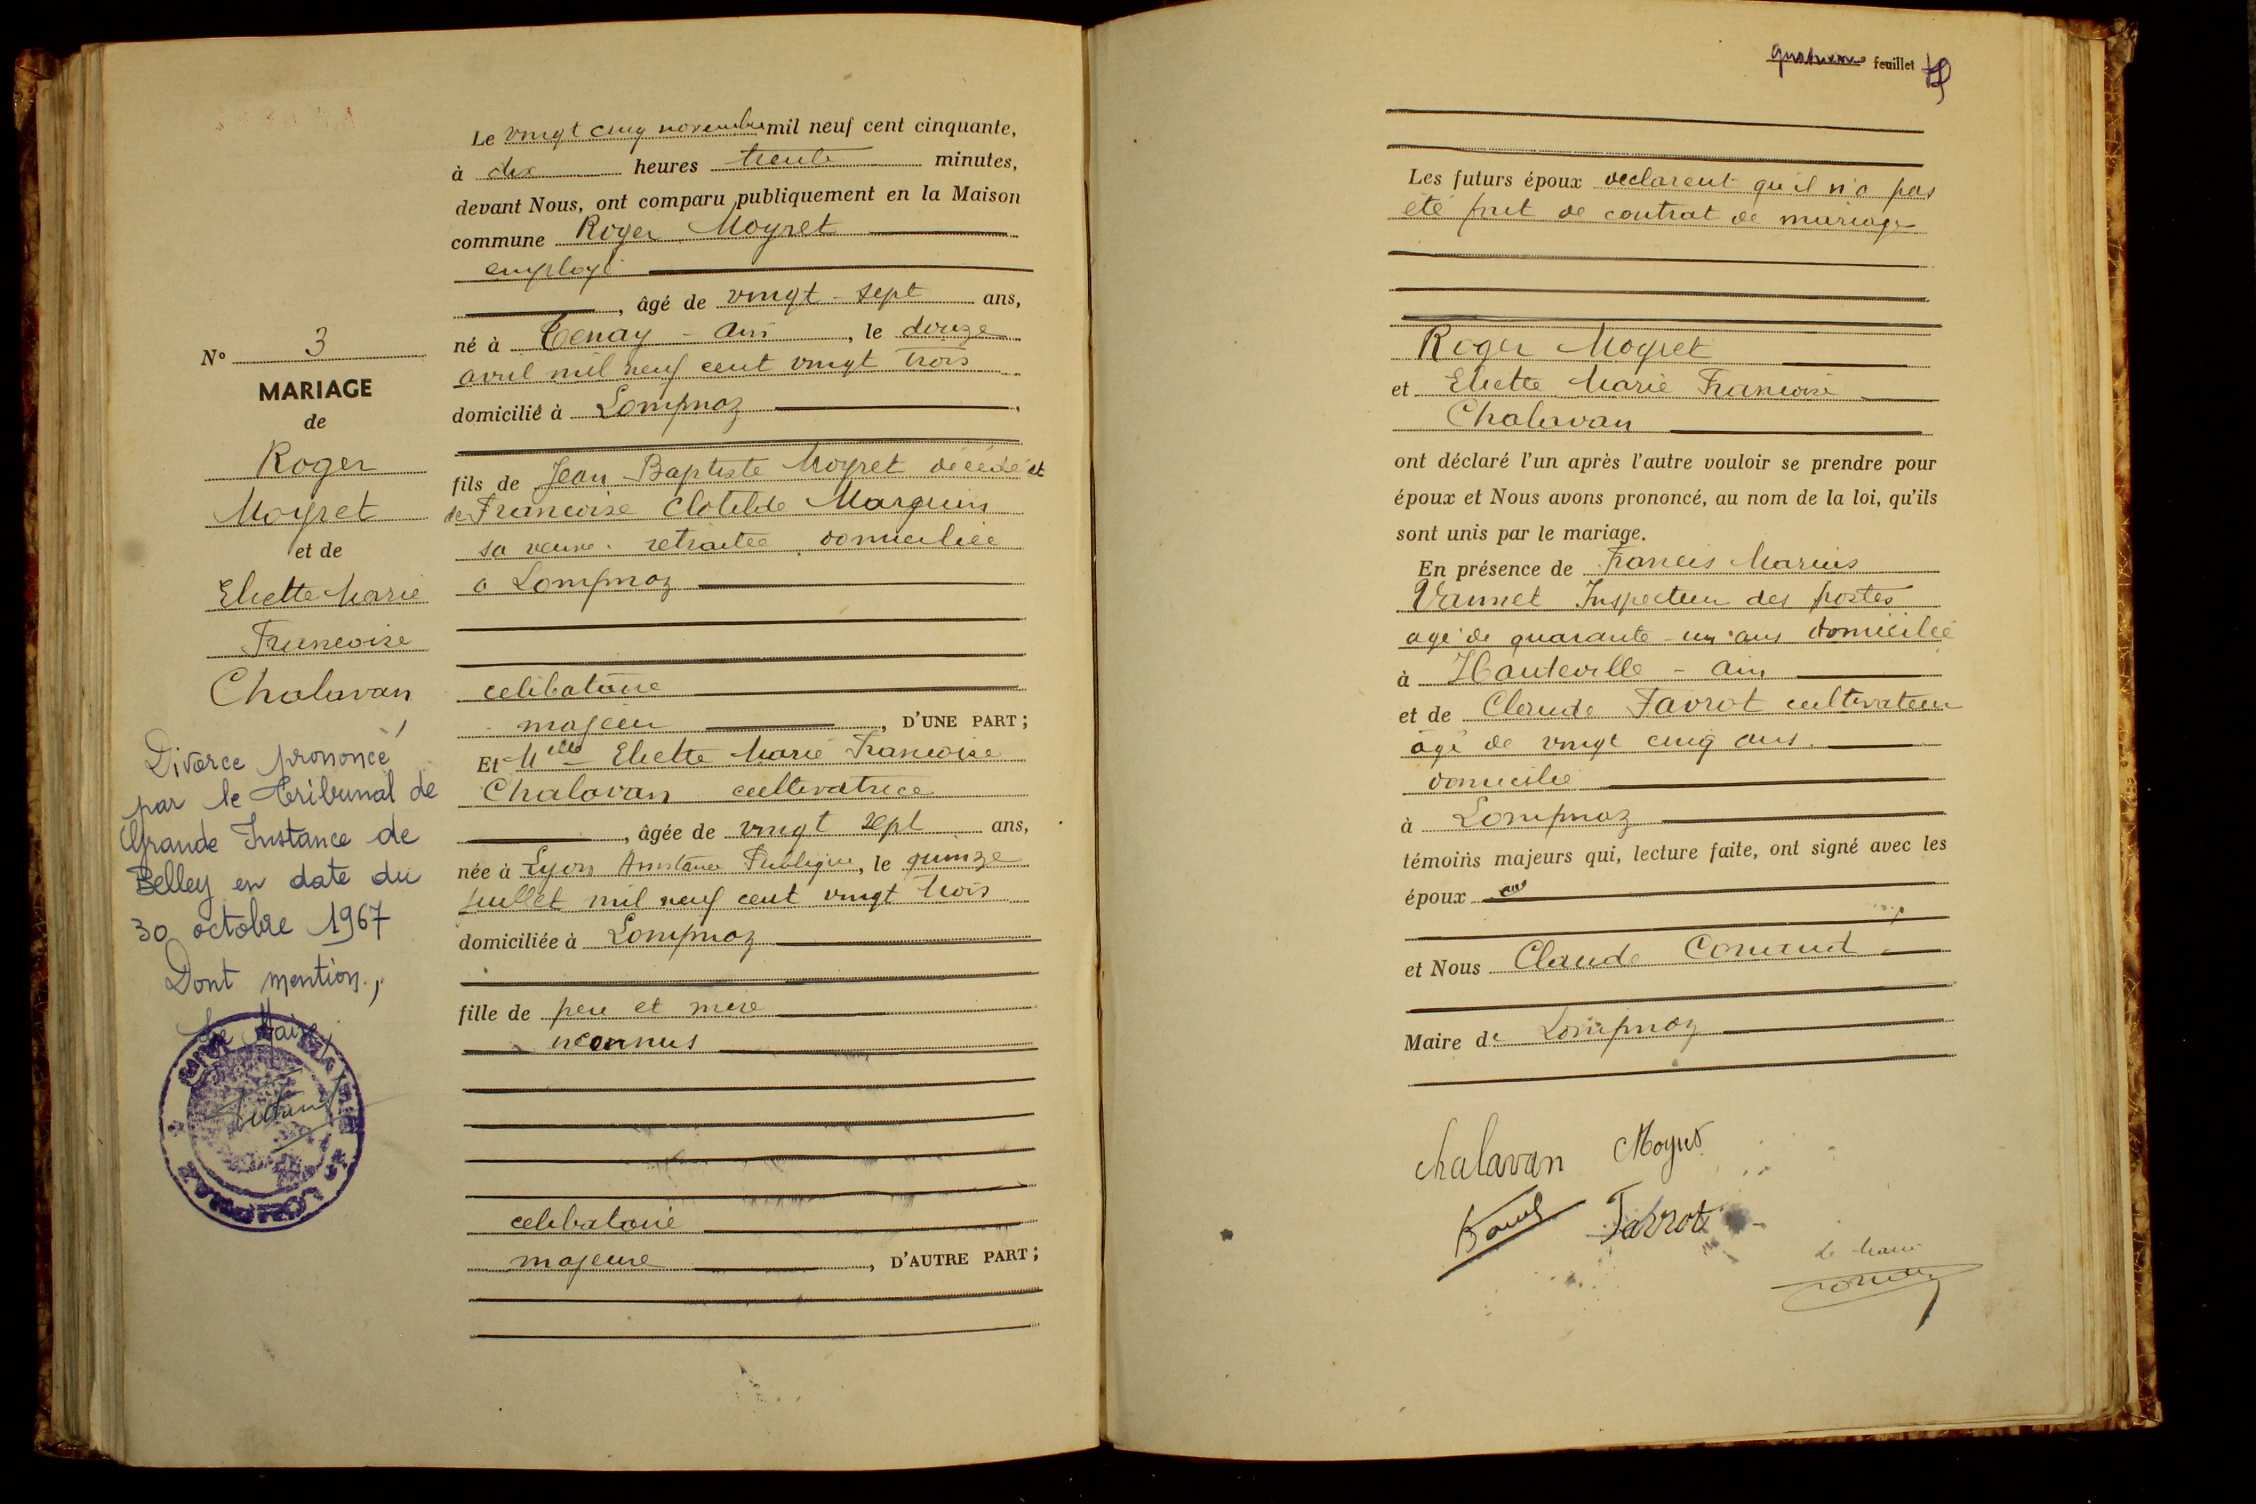 N° 3
MARIAGE
de
Roger
Moyret
et de
Eliette Marie
Francoise
Chalavan
Divorce prononcé
par le Tribunal de
Grande Instance de
Belley en date du
30 octobre 1967
Dont mention,
Le Maire,
Le vingt cinq novembre mil neuf cent cinquante,
à dix heures trente minutes,
devant Nous, ont comparu publiquement en la Maison
commune Roger Moyret
employé
, âgé de vingt-sept ans,
né à Tenay - Ain, le douze
avril mil neuf cent vingt trois
domicilié à Lompnaz
fils de Jean Baptiste Moyret décédé et
de Francoise Clotilde Marquin
sa veuve. retraitée domiciliée
a Lompnaz
celibataire
majeur, D'UNE PART ;
Et Mlle Eliette Marie Francoise
Chalavan cultivatrice
, âgée de vingt sept ans,
née à Lyon Assistance Publique, le quinze
juillet mil neuf cent vingt trois
domiciliée à Lompnaz
fille de pere et mere
inconnus
celibataire
majeure, D'AUTRE PART ;
feuillet
Les futurs époux declarent qu'il n'a pas
été fait de contrat de mariage
Roger Moyret
et Eliette Marie Francoise
Chalavan
ont déclaré l'un après l'autre vouloir se prendre pour
époux et Nous avons prononcé, au nom de la loi, qu'ils
sont unis par le mariage.
En présence de Francis Marius
Inspecteur des postes
agé de quarante-un ans domicilié
à Hauteville - Ain
et de Claude Favrot cultivateur
agé de vingt cinq ans.
domicilié
à Lompnaz
témoins majeurs qui, lecture faite, ont signé avec les
époux
et Nous Claude
Maire de Lompnaz
Chalavan Moyret
Favrot
Le Maire